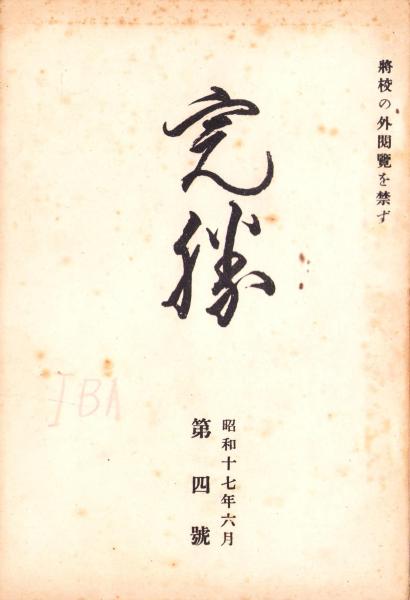 將校の外閱覽を禁ず
完勝
昭和十七年六月
第四號
IBA